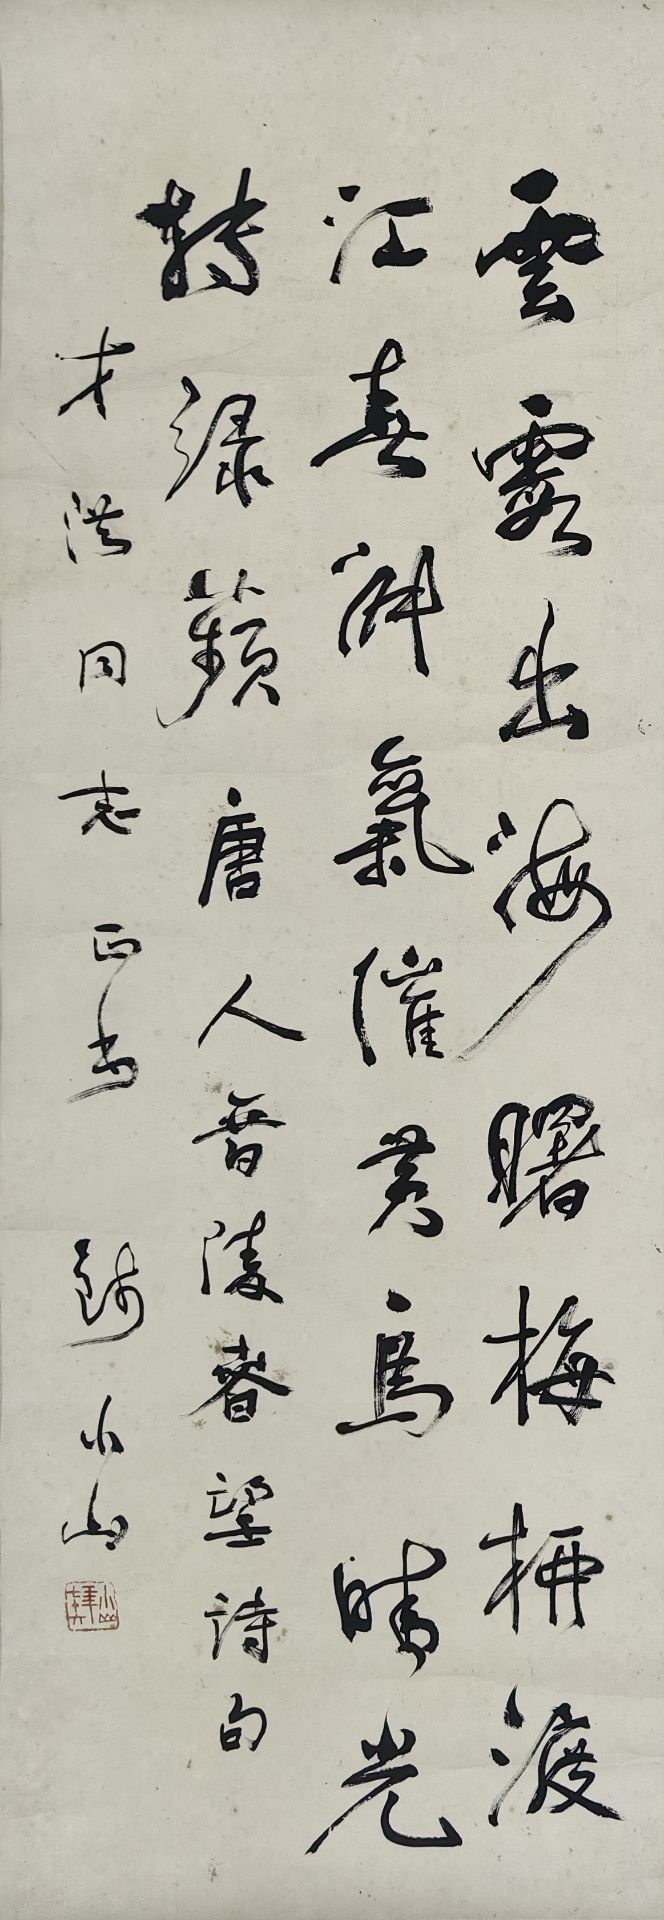 雲霞出海曙梅柳渡
江春淑氣催黄鳥晴光
轉緑蘋唐人晉陵春望詩句
才洪同志正書
錢小山
小山